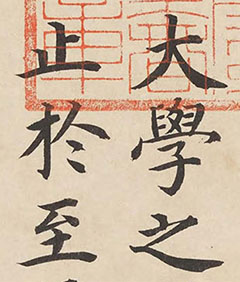 大學之
止於至